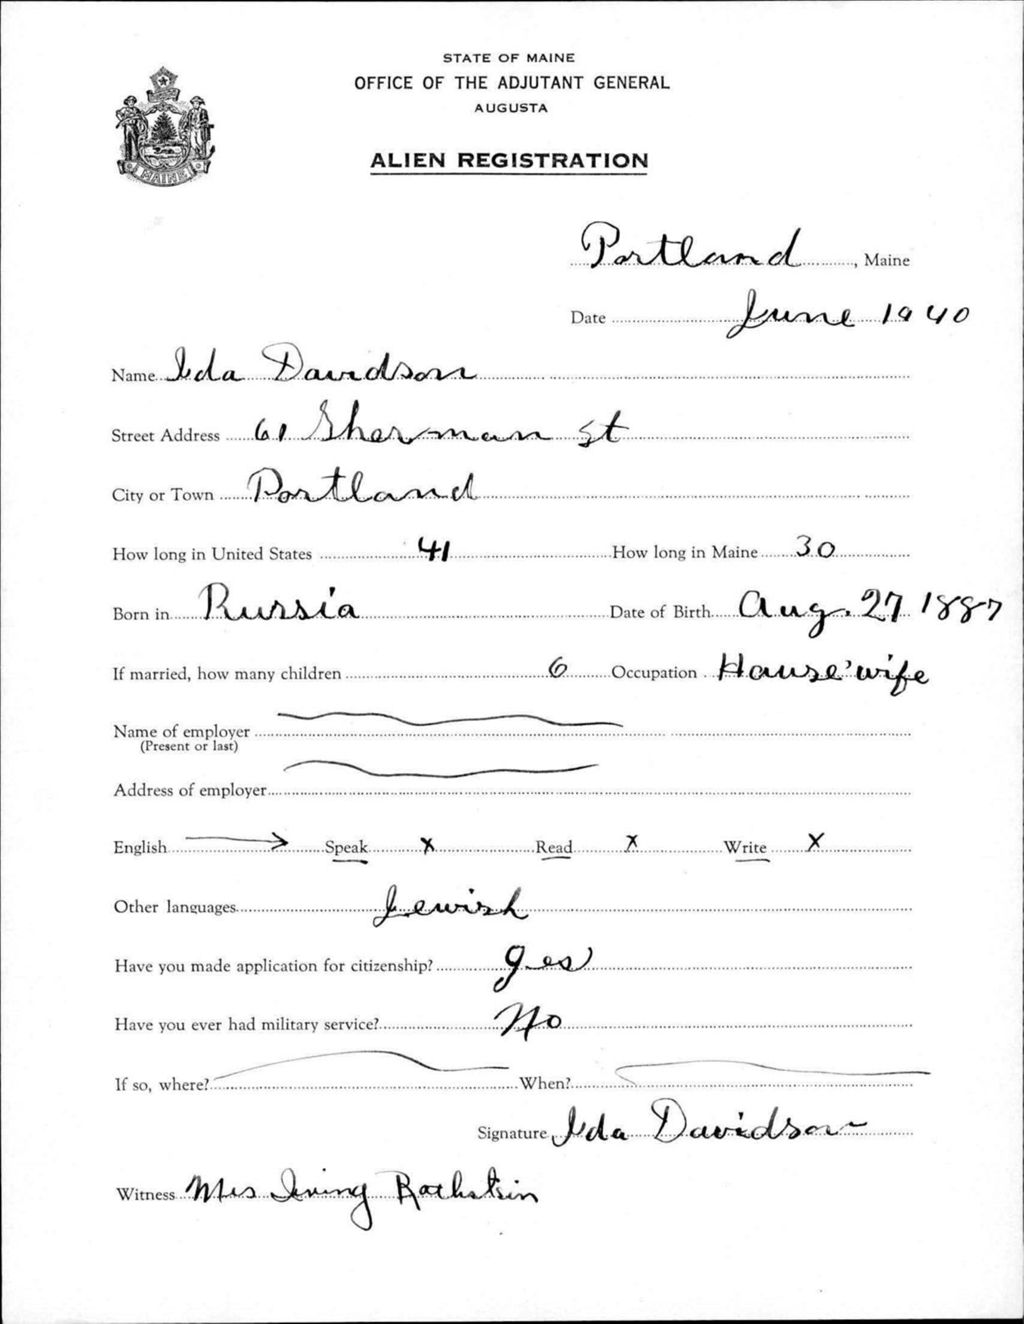 STATE OF MAINE
OFFICE OF THE ADJUTANT GENERAL
AUGUSTA
ALIEN REGISTRATION
MAINE
Portland, Maine
Date June 1940
Name Ida Davidson
Street Address 61 Sherman St
City or Town Portland
How long in United States 41 How long in Maine 30
Born in Russia Date of Birth Aug. 27 1887
If married, how many children 6 Occupation House'wife
Name of employer
(Present or last)
Address of employer
English Speak X Read X Write X
Other languages Jewish
Have you made application for citizenship? yes
Have you ever had military service? No
If so, where? When?
Signature Ida Davidson
Witness Mrs Irving Rothstein